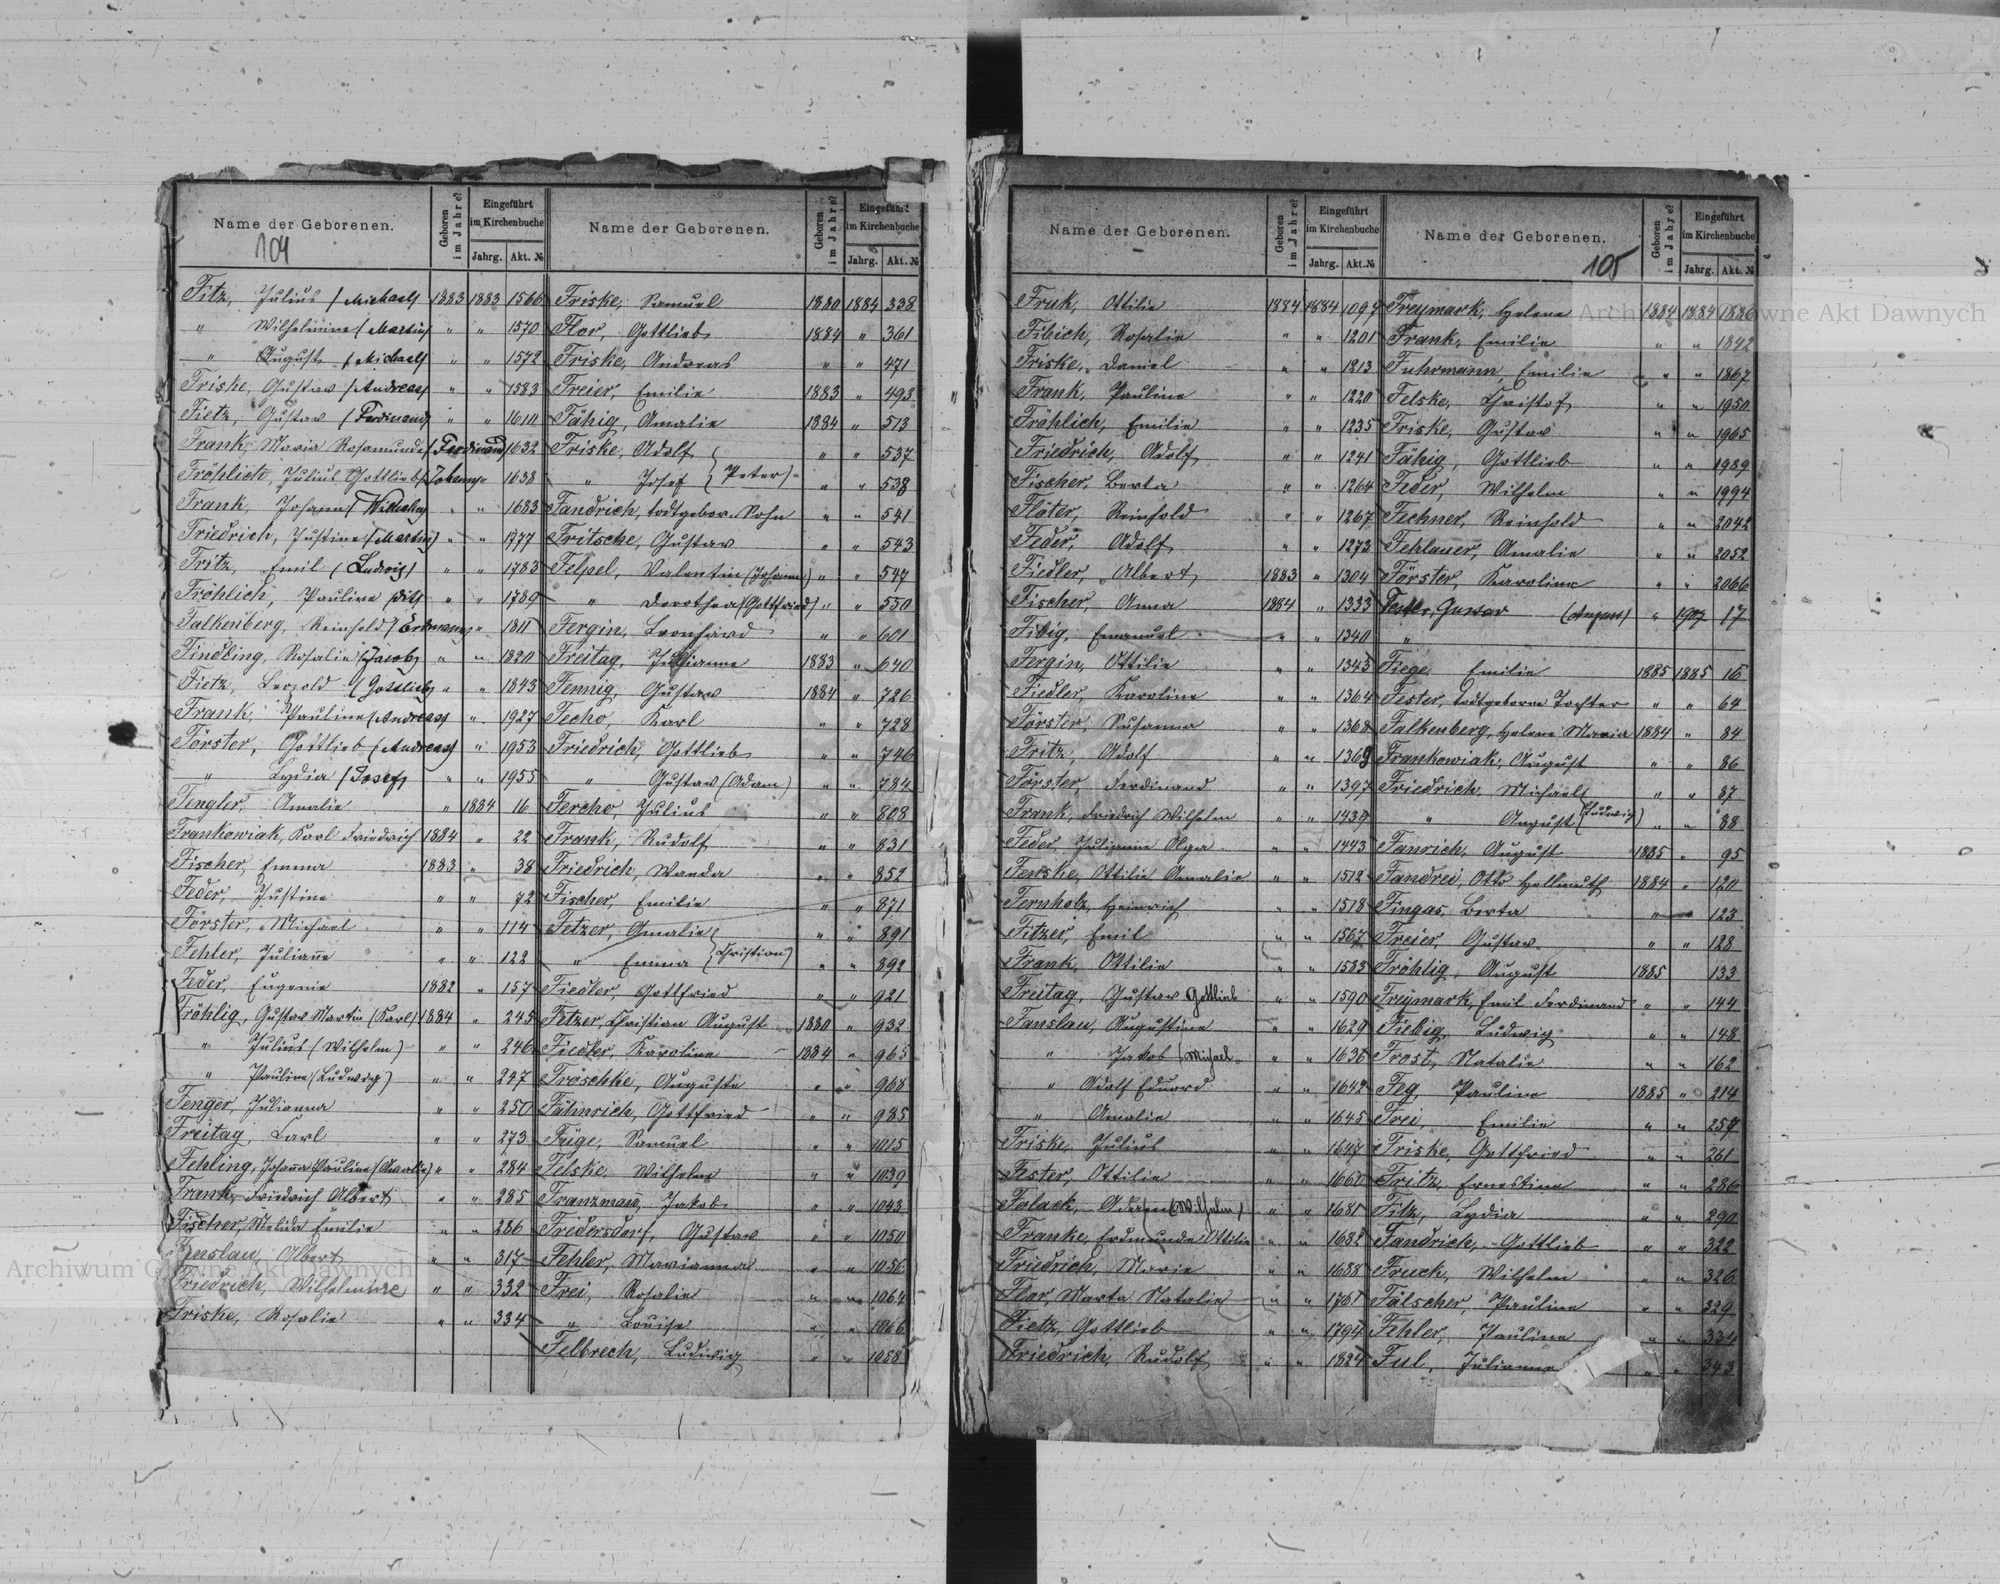 Name der Geborenen.
104
Geboren im Jahre?
Eingeführt im Kirchenbuche
Jahrg. Akt. №
Fitz, Julius (Michael) 1883 1883 1566
" Wilhelmine (Martin) " " 1570
" August (Michael) " " 1572
Friske, Gustav (Andreas) " " 1583
Fietz, Gustav (Ferdinand) " " 1610
Frank, Maria Rosamunde (Ferdinand) 1632
Fröhlich, Julius Gottlieb (Johann) " 1638
Frank, Johann (Wilhelm) " " 1683
Friedrich, Justine (Martin) " " 1777
Fritz, Emil (Ludwig) " " 1783
Fröhlich, Pauline " " 1789
Falkenberg, Reinhold (Erdmann) " 1811
Findling, Rosalie (Jacob) " " 1820
Fietz, Leopold (Gottlieb) " " 1843
Frank, Pauline (Andreas) " 1927
Förster, Gottlieb (Andreas) " 1953
" Lydia (Josef) " " 1955
Fengler, Amalie " 1884 16
Frankowiak, Karl Friedrich 1884 " 22
Fischer, Emma 1883 " 38
Feder, Justine " " 72
Förster, Michael " " 114
Fehler, Juliane " " 122
Feder, Eugenie 1882 " 157
Fröhlig, Gustav Martin (Karl) 1884 " 245
" Julius (Wilhelm) " " 246
" Pauline (Ludwig) " " 247
Fenger, Julianna " " 250
Freitag, Carl " " 273
Fehling, Johana Pauline (Amalie) " " 284
Frank, Friedrich Albert " " 285
Fischer, Melida Emilie " " 286
Fenslau, Albert " " 317
Friedrich, Wilhelmine " " 332
Friske, Rosalie " " 334
Name der Geborenen.
Geboren im Jahre?
Eingeführt im Kirchenbuche
Jahrg. Akt. №
Friske, Samuel 1880 1884 338
Flor, Gottlieb 1884 " 361
Friske, Andreas " " 471
Freier, Emilie 1883 " 493
Fähig, Amalie 1884 " 513
Friske, Adolf " " 537
" Josef (Peter) " " 538
Fandrich, todtgebor. Sohn " " 541
Fritsche, Gustav " " 543
Felpel, Valentin (Johann) " " 547
" Dorothea (Gottfried) " " 550
Fergin, Leonhard " " 601
Freitag, Julianne 1883 " 640
Fennig, Gustav 1884 " 726
Fecho, Karl " " 728
Friedrich, Gottlieb " " 746
" Gustav (Adam) " " 784
Fercho, Julius " " 808
Frank, Rudolf " " 831
Friedrich, Wanda " " 852
Fischer, Emilie " " 871
Fetzer, Amalie " " 891
" Emma (Christian) " " 892
Fiedler, Gottfried " " 921
Fetzer, Christian August 1880 " 932
Fiedler, Karoline 1884 " 965
Fröschke, Auguste " " 968
Fähnrich, Gottfried " " 985
Füge, Samuel " " 1015
Felske, Wilhelm " " 1039
Franzmann, Jakob " " 1043
Fredersdorf, Gustav " " 1050
Fehler, Marianna " " 1056
Frei, Rosalie " " 1064
" Louise " " 1066
Felbrech, Ludwig " " 1088
Name der Geborenen.
Geboren im Jahre?
Eingeführt im Kirchenbuche
Jahrg. Akt. №
Fruk, Ottilie 1884 1884 1099
Fibich, Rosalie " " 1201
Friske, Daniel " " 1213
Frank, Pauline " " 1220
Fröhlich, Emilie " " 1235
Friedrich, Adolf " " 1241
Fischer, Berta " " 1264
Flöter, Reinhold " " 1267
Feder, Adolf " " 1273
Fiedler, Albert 1883 " 1304
Fischer, Anna 1884 " 1333
Fibig, Emanuel " " 1340
Fergin, Ottilie " " 1343
Fiedler, Karoline " " 1364
Förster, Susanna " " 1368
Fritz, Adolf " " 1369
Förster, Ferdinand " " 1397
Frank, Friedrich Wilhelm " " 1439
Feder, Julianne Olga " " 1443
Fenske, Ottilie Amalie " " 1512
Fernholz, Heinrich " " 1518
Fitzer, Emil " " 1567
Frank, Ottilie " " 1583
Freitag, Gustav Gottlieb " " 1590
Fanslau, Augustine " " 1629
" Jakob (Michael " " 1636
" Adolf Eduard " " 1642
" Amalie " " 1645
Friske, Julius " " 1647
Fester, Ottilie " " 1667
Folack, Adam (Wilhelm) " " 1681
Franke, Erdmunde Ottilie " " 1682
Friedrich, Marie " " 1688
Flor, Marta Natalie " " 1761
Fietz, Gottlieb " " 1794
Friedrich, Rudolf " " 1824
Name der Geborenen.
105
Geboren im Jahre?
Eingeführt im Kirchenbuche
Jahrg. Akt. №
Freymark, Helene 1884 1884 1836
Frank, Emilie " " 1842
Fuhrmann, Emilie " " 1867
Felske, Christof " " 1950
Friske, Gustav " " 1965
Fähig, Gottlieb " " 1989
Feder, Wilhelm " " 1994
Fechner, Reinhold " " 2042
Fehlauer, Amalie " " 2052
Förster, Karoline " " 2066
Fester, Gustav (August) " 1907 17
"
Fiege, Emilie 1885 1885 16
Fester, todtgeborne Tochter " " 64
Falkenberg, Helene Maria 1884 " 84
Frankowiak, August " " 86
Friedrich, Michael " " 87
" August (Ludwig) " " 88
Fanrich, August 1885 " 95
Fandrei, Otto Hellmuth 1884 " 120
Fingas, Berta " " 123
Freier, Gustav " " 128
Fröhlig, August 1885 133
Freymark, Emil Ferdinand " " 144
Fiebig, Ludwig " " 148
Frost, Natalie " " 162
Feg, Pauline 1885 " 214
Frei, Emilie " " 257
Friske, Gottfried " " 261
Fritz, Ernestine " " 286
Fitz, Lydia " " 290
Fandrich, Gottlieb " " 322
Fruck, Wilhelm " " 326
Fälscher, Pauline " " 329
Fehler, Pauline " " 334
Ful, Julianne " " 343
Archiwum Główne Akt Dawnych
Archiwum Główne Akt Dawnych